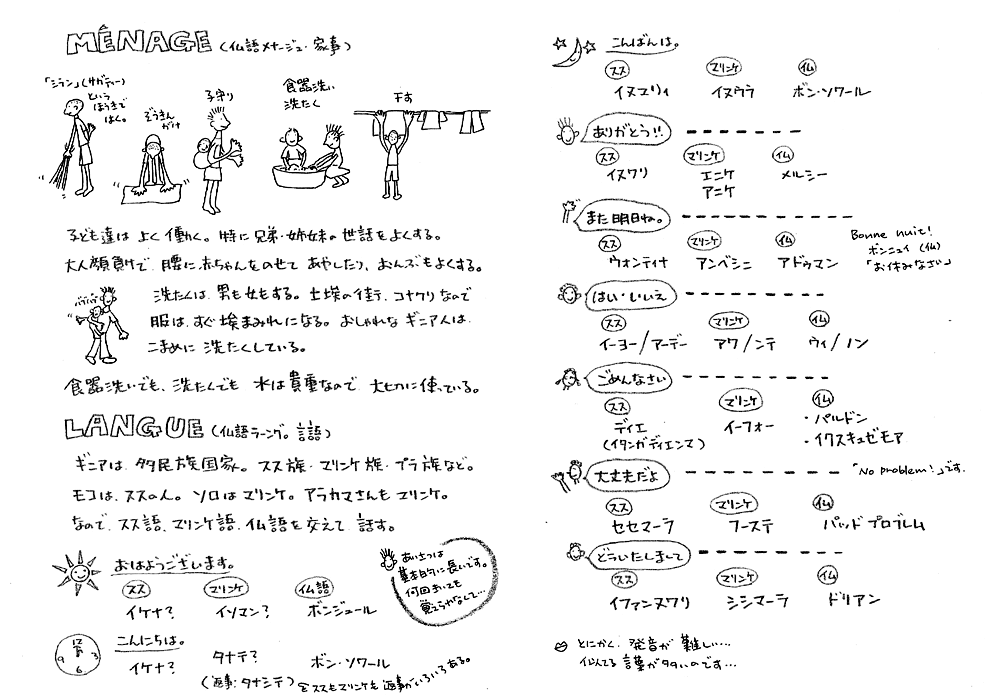 MÊNAGE (仏語メナージュ・家事)
「シラン」(サガティー)
という
ほうきで
はく。
ぞうきん
がけ
子守り
食器洗い
洗たく
干す
子ども達は よく働く。特に兄弟・姉妹の世話をよくする。
大人顔負けで、腰に赤ちゃんをのせて あやしたり、おんぶもよくする。
洗たくは、男も女もする。土埃の街、コナクリなので
服は、すぐ埃まみれになる。おしゃれな ギニア人は、
こまめに 洗たくしている。
食器洗いでも、洗たくでも 水は貴重なので 大切に使っている。
LANGUE (仏語ラーング。言語)
ギニアは、多民族国家。スス族・マリンケ族・プラ族など。
モコは、ススの人。ソロはマリンケ。アラカマさんも マリンケ。
なので、スス語、マリンケ語、仏語を交えて 話す。
おはようございます。
スス マリンケ 仏語
イケナ? イソマン? ボンジュール
あいさつは
基本的に長いです。
何回きいても
覚えられなくて…
12 3 6 9
こんにちは。
イケナ? タナテ? ボン・ソワール
(返事:タナシテ) ススもマリンケも返事がいろいろある。
こんばんは。
スス マリンケ 仏
イヌマリィ イヌウラ ボン・ソワール
ありがとう!!
スス マリンケ 仏
イヌワリ エニケ メルシー
アニケ
また明日ね。
スス マリンケ 仏
ウォンティナ アンベシニ アドゥマン
Bonne nuit!
ボンニュイ (仏)
「お休みなさい」
はい・いいえ
スス マリンケ 仏
イーヨー/アーデー アワ/ンテ ウィ/ノン
ごめんなさい
スス マリンケ 仏
ディエ イーフォー ・パルドン
(イタンガディエンマ) ・イクスキュゼモア
大丈夫だよ 「No problem!」です。
スス マリンケ 仏
セセマーラ フーステ パッド プロブレム
どういたしまして
スス マリンケ 仏
イファンヌワリ シシマーラ ドリアン
とにかく、発音が難しい……
似てる言葉が多いのです…